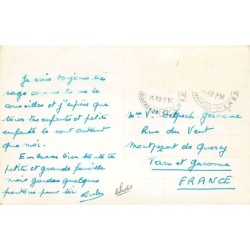 Je suis toujours très
sage comme tu me le
conseilles et j'espère que
tous tes enfants et petits
enfants le sont autant
que moi.
Embrasse bien toute ta
petite et grande famille
mais gardes quelques
pour toi
Mme Vve Delpech Germaine
Rue du Vent
Montpezat de Quercy
Tarn et Garonne
FRANCE